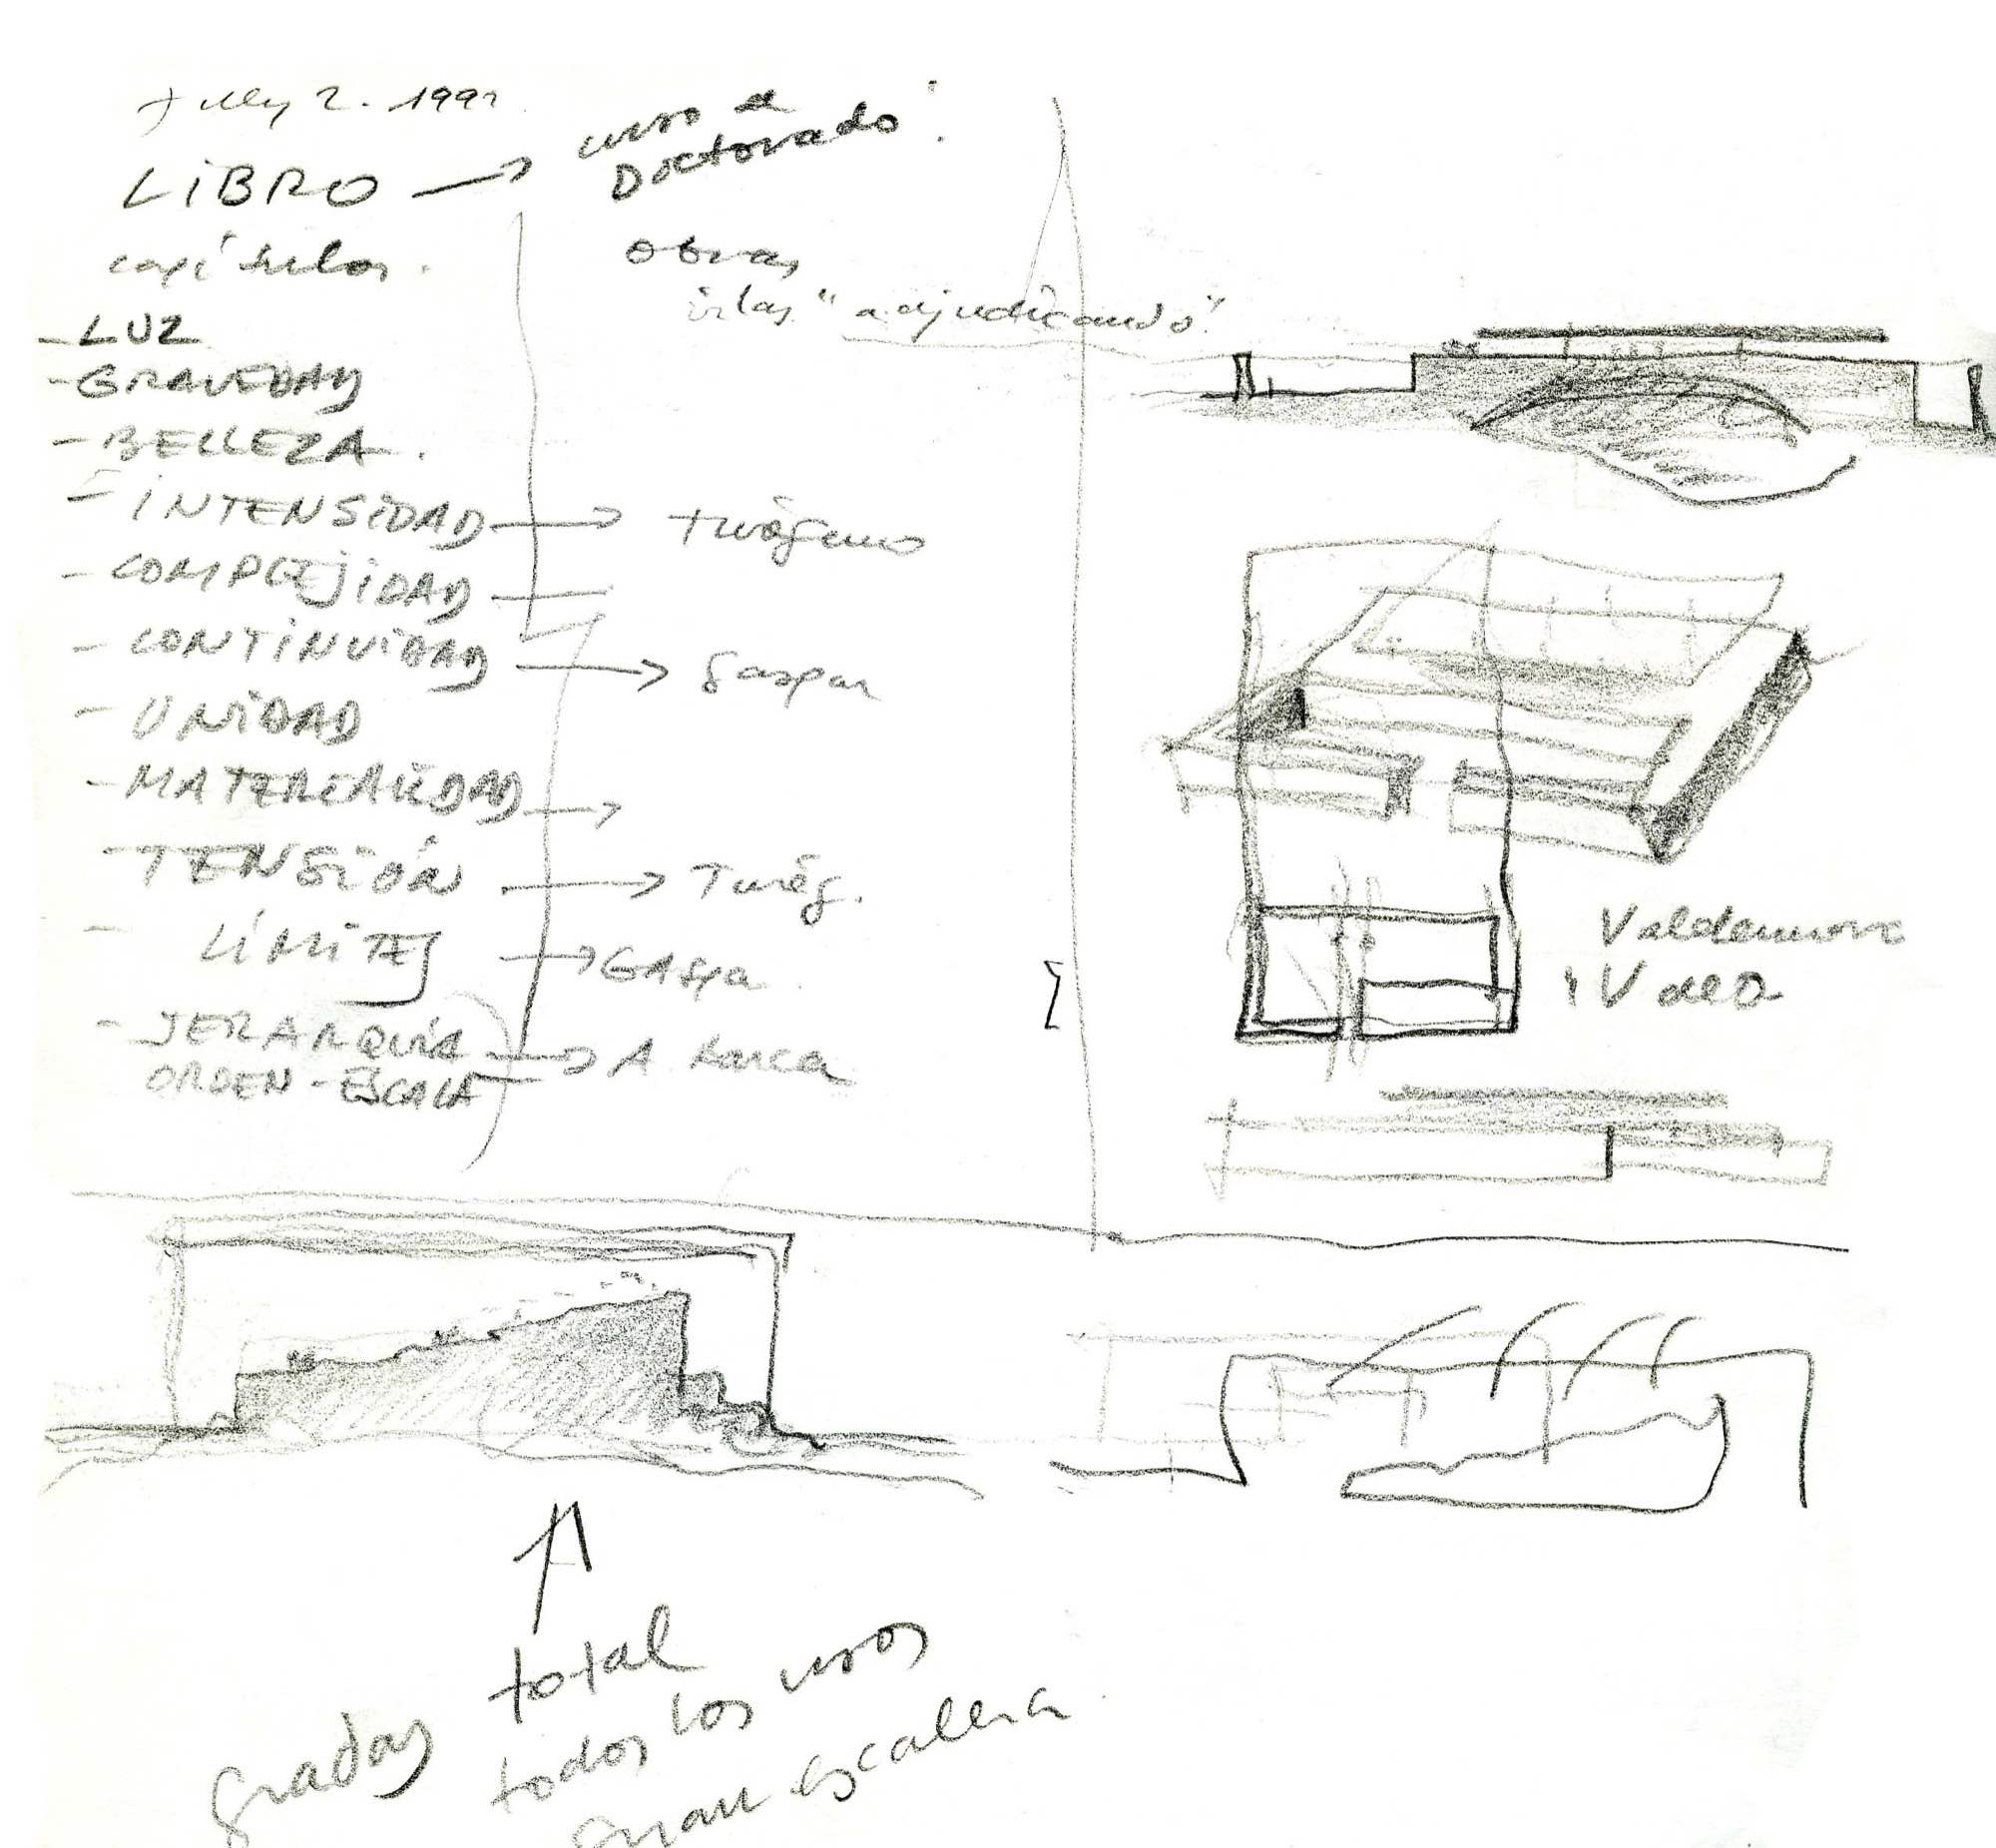 July 2. 199
LIBRO → curso de
Doctorado.
capítulos.
Obras
irlas "adjudicando".
- LUZ
- GRAVEDAD
- BELLEZA.
- INTENSIDAD → turégano
- COMPLEJIDAD
- CONTINUIDAD → Gaspar
- UNIDAD
- MATERIALIDAD →
- TENSIÓN → Turég.
- LÍMITES → GASPA
- JERARQUÍA → A
ORDEN - ESCALA
Valdemoro
total
gradas todos los usos
gran escalera